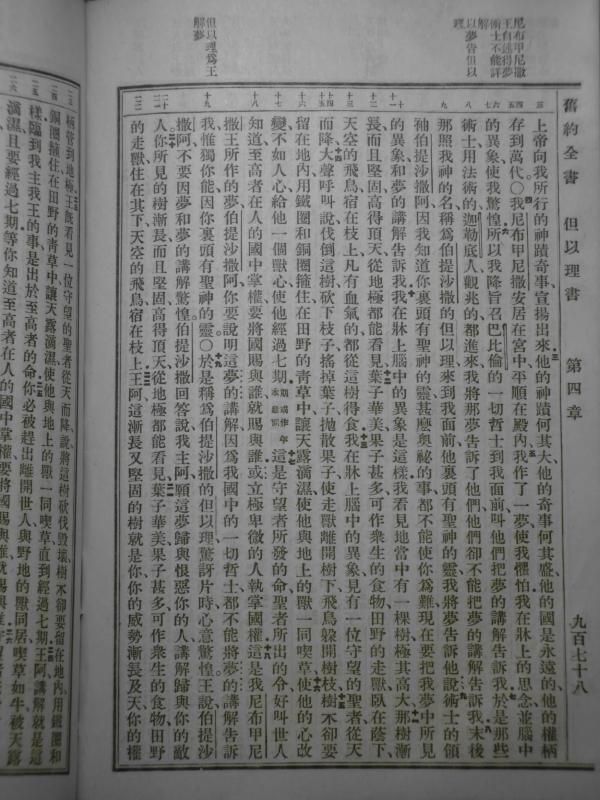 尼布甲尼撒
王自述得夢
術士不能詳
解
以夢告但以
理
但以理爲王
解夢
舊約全書　但以理書　第四章　九百七十八
上帝向我所行的神蹟奇事宣揚出來他的神蹟何其大他的奇事何其盛他的國是永遠的他的權柄
存到萬代○我尼布甲尼撒安居在宮中平順在殿內我作了一夢使我懼怕我在牀上的思念並腦中
的異象使我驚惶所以我降旨召巴比倫的一切哲士到我面前叫他們把夢的講解告訴我於是那些
術士用法術的迦勒底人觀兆的都進來我將那夢告訴了他們他們卻不能把夢的講解告訴我末後
那照我神的名稱爲伯提沙撒的但以理來到我面前他裏頭有聖神的靈我將夢告訴他說術士的領
袖伯提沙撒阿因我知道你裏頭有聖神的靈甚麼奧祕的事都不能使你爲難現在要把我夢中所見
的異象和夢的講解告訴我我在牀上腦中的異象是這樣我看見地當中有一棵樹極其高大那樹漸
長而且堅固高得頂天從地極都能看見葉子華美果子甚多可作衆生的食物田野的走獸臥在蔭下
天空的飛鳥宿在枝上凡有血氣的都從這樹得食我在牀上腦中的異象見有一位守望的聖者從天
而降大聲呼叫說伐倒這樹砍下枝子搖掉葉子拋散果子使走獸離開樹下飛鳥躲開樹枝樹不卻要
留在地內用鐵圈和銅圈箍住在田野的青草中讓天露滴濕使他與地上的獸一同喫草使他的心改
變不如人心給他一個獸心使他經過七期期或作年本章同這是守望者所發的命聖者所出的令好叫世人
知道至高者在人的國中掌權要將國賜與誰就賜與誰或立極卑微的人執掌國權這是我尼布甲尼
撒王所作的夢伯提沙撒阿你要說明這夢的講解因爲我國中的一切哲士都不能將夢的講解告訴
我惟獨你能因你裏頭有聖神的靈○於是稱爲伯提沙撒的但以理驚訝片時心意驚惶王說伯提沙
撒阿不要因夢和夢的講解驚惶伯提沙撒回答說我主阿願這夢歸與恨惡你的人講解歸與你的敵
人你所見的樹漸長而且堅固高得頂天從地極都能看見葉子華美果子甚多可作衆生的食物田野
的走獸住在其下天空的飛鳥宿在枝上王阿這漸長又堅固的樹就是你你的威勢漸長及天你的權
柄管到地極王既看見一位守望的聖者從天而降說將這樹砍伐毀壞樹不卻要留在地內用鐵圈和
銅圈箍住在田野的青草中讓天露滴濕使他與地上的獸一同喫草直到經過七期王阿講解就是這
樣臨到我主我王的事是出於至高者的命你必被趕出離開世人與野地的獸同居喫草如牛被天露
滴濕且要經過七期等你知道至高者在人的國中掌權要將國賜與誰就賜與